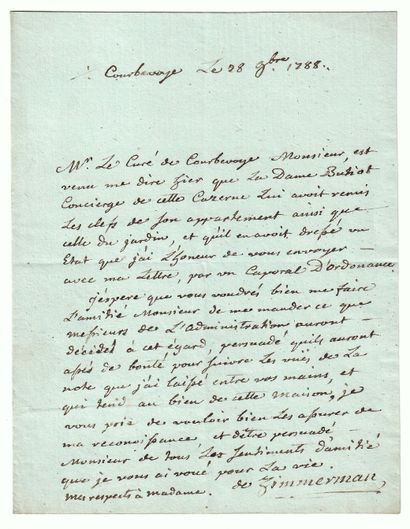 Courbevoye Le 28 9bre 1788.
Mr. Le Curé de Courbevoye Monsieur, est
venu me dire hier que La Dame Butiot
Concierge de cette Cazerne Lui avoit remis
Les clefs de son appartement ainsi que
celle du jardin, et qu'il en avoit dressé un
Etat que j'ai L'honeur de vous envoyer
avec ma Lettre, par un Caporal D'ordonance
j'espere que vous voudrés bien me faire
L'amitié Monsieur de me mander ce que
messieurs de L'administration auront
décidés à cet égard, persuadé qu'ils auront
assés de bonté pour suivre Les vuës de La
note que j'ai laissé entre vos mains, et
qui tend au bien de cette maison, je
vous prie de vouloir bien Les assurer de
ma reconoissance, et d'être persuadé
Monsieur de tous Les sentiments d'amitié
que je vous ai voué pour La vie.
mes respects à madame. de Zimmerman